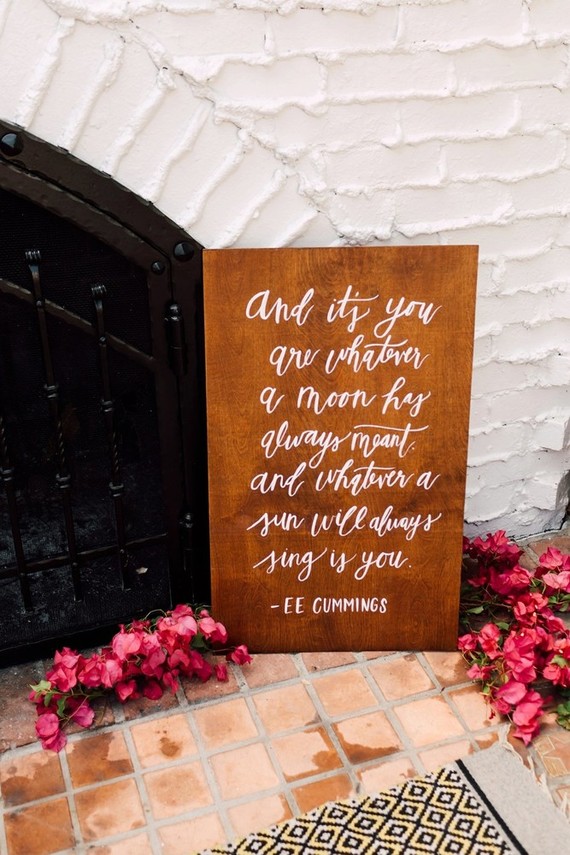 And it's you
are whatever
a moon has
always meant.
and whatever a
sun will always
sing is you.
-EE CUMMINGS